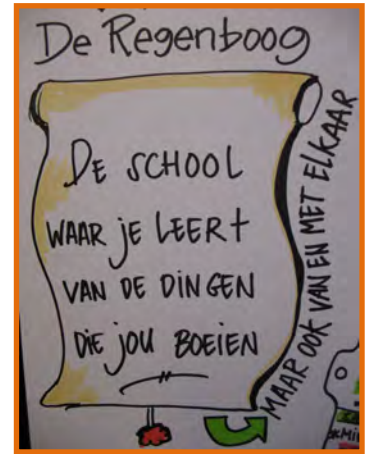 De Regenboog
DE SCHOOL
WAAR JE LEERT
VAN DE DINGEN
DIE JOU BOEIEN
MAAR OOK VAN EN MET ELKAAR